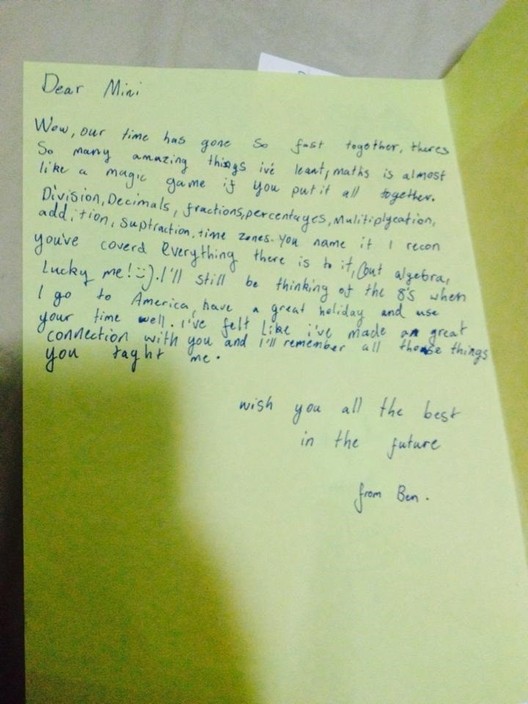 Dear Mini
Wow, our time has gone so fast together, theres
So many amazing things ive leant, maths is almost
like a magic game if you put it all together.
Division, Decimals, fractions, percentages, Mulitiplycation,
addition, suptraction, time zones. You name it I recon
you've coverd Everything there is to it, (but algebra,
Lucky me! :). I'll still be thinking of the 8's when
I go to America, have a great holiday and use
your time well. i've felt like i've made an great
connection with you and i'll remember all those things
you taght me.
wish you all the best
in the future
from Ben.